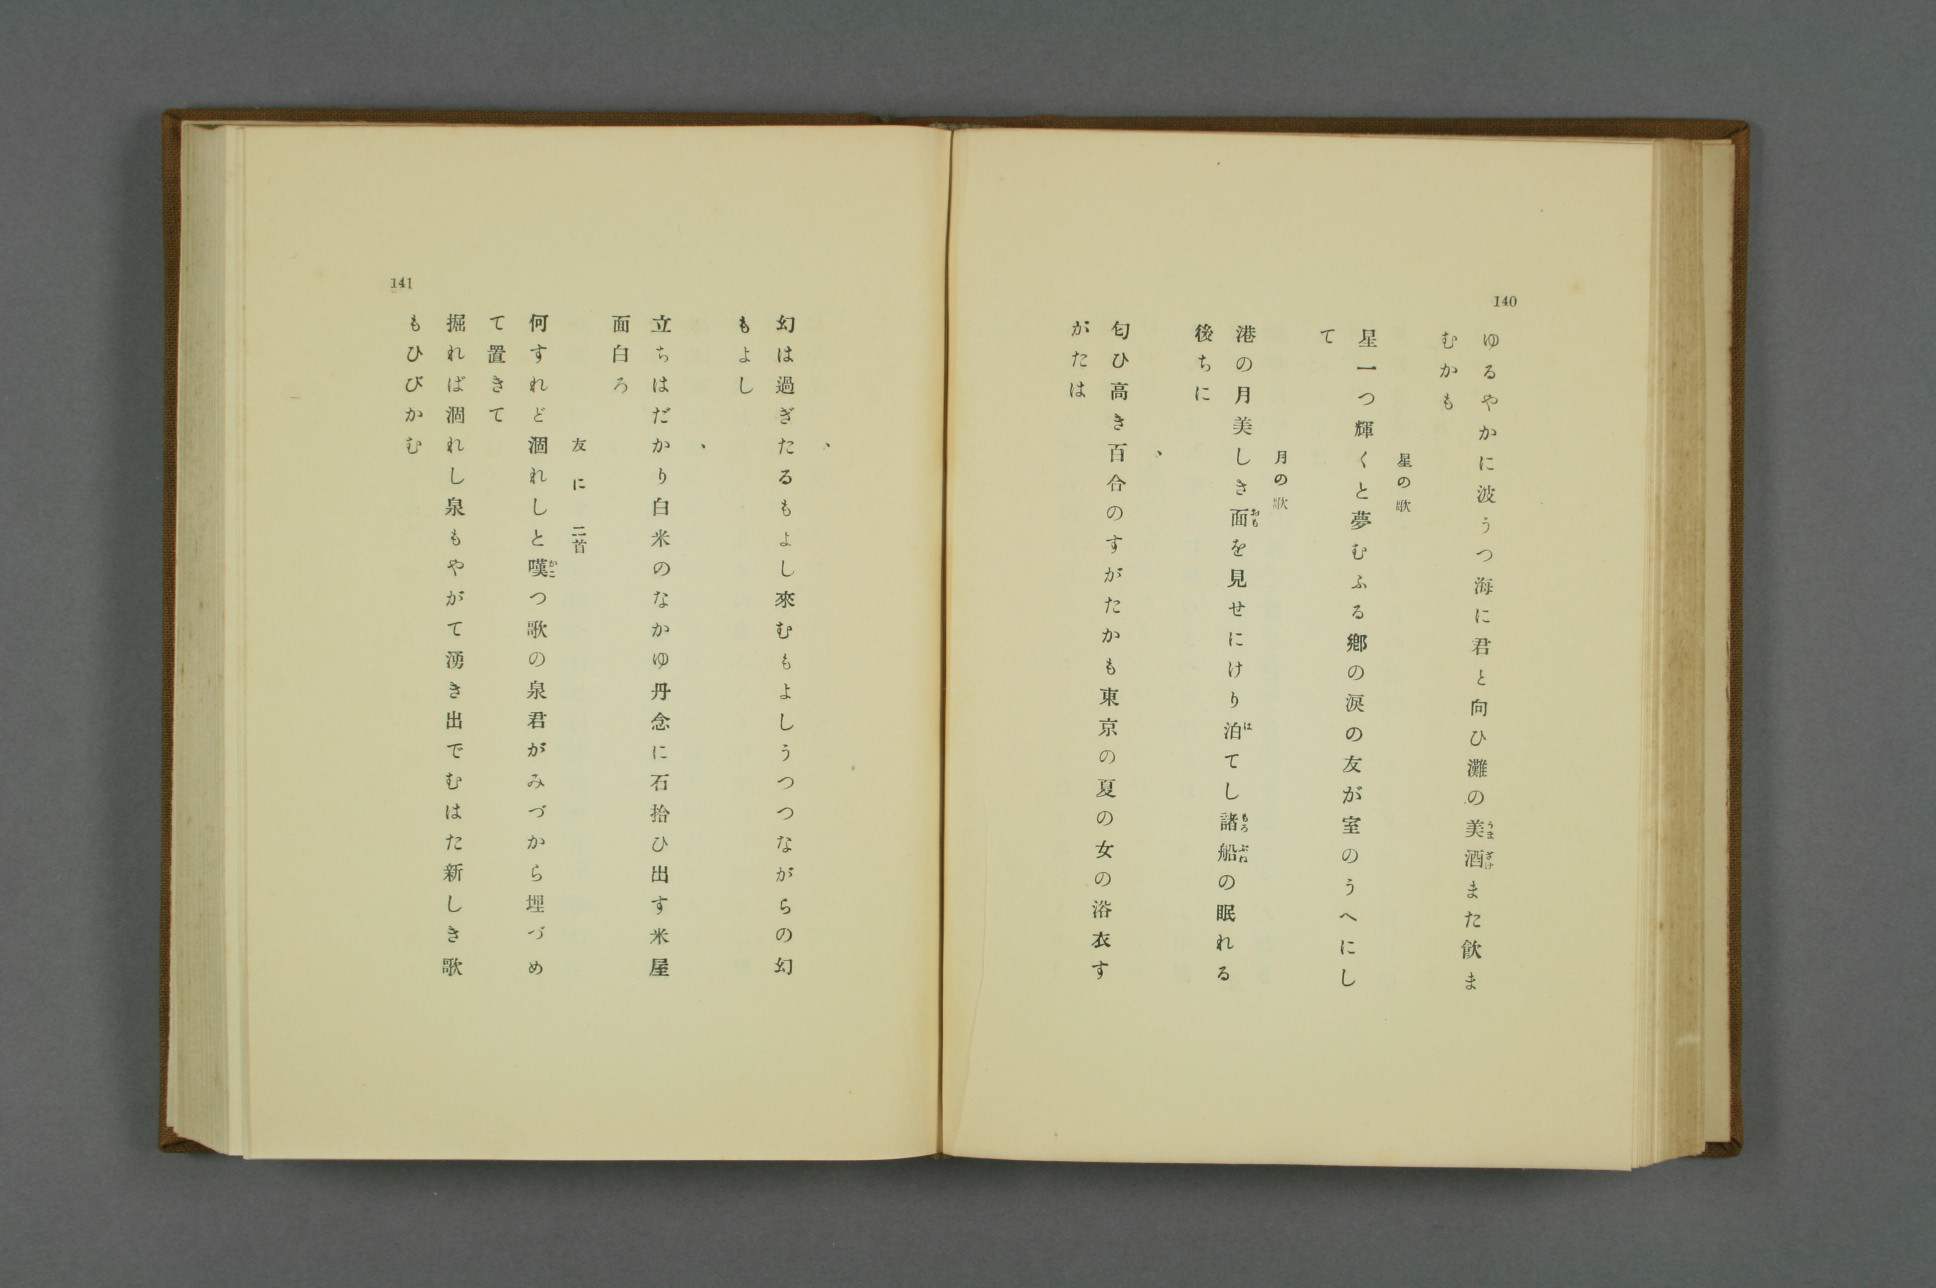 140
ゆるやかに波うつ海に君と向ひ灘の美酒また飮ま
むかも
星の歌
星一つ輝くと夢むふる鄕の淚の友が室のうへにし
て
月の歌
港の月美しき面を見せにけり泊てし諸船の眠れる
後ちに
、
匂ひ高き百合のすがたかも東京の夏の女の浴衣す
がたは
、
幻は過ぎたるもよし來むもよしうつつながらの幻
もよし
、
立ちはだかり白米のなかゆ丹念に石拾ひ出す米屋
面白ろ
友に 二首
何すれど涸れしと嘆つ歌の泉君がみづから埋づめ
て置きて
掘れば涸れし泉もやがて湧き出でむはた新しき歌
もひびかむ
141